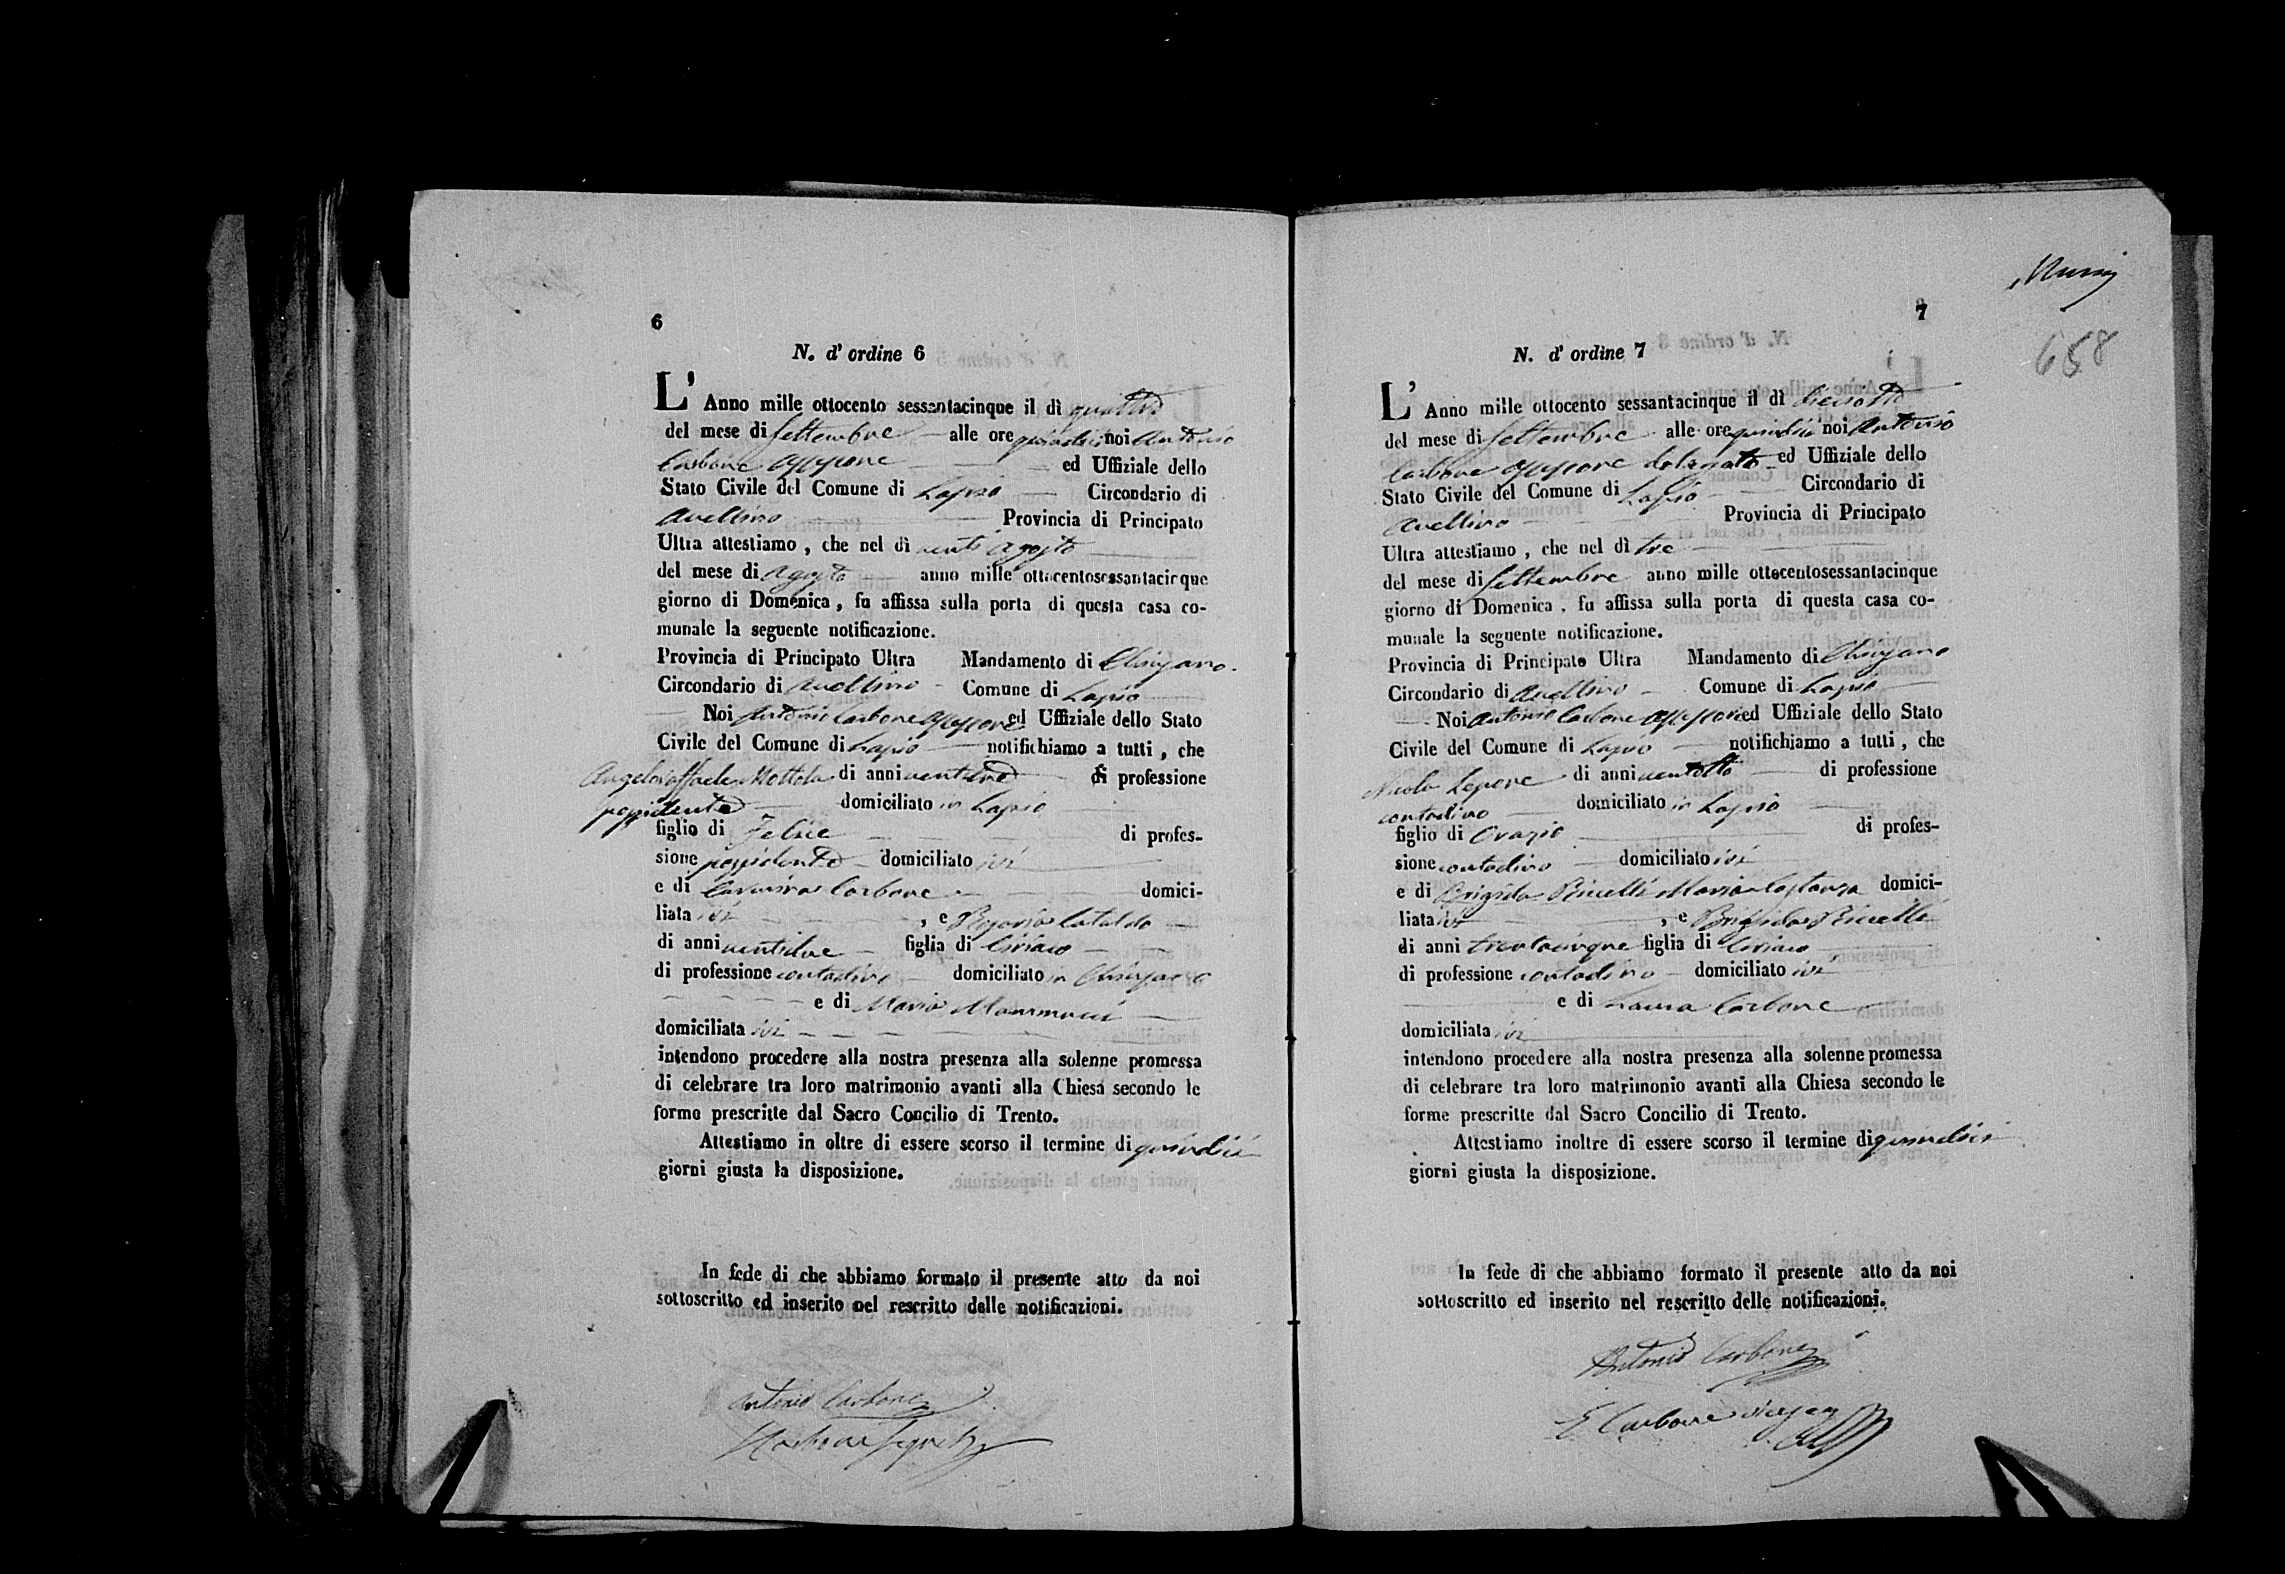 6
N. d' ordine 6
L' Anno mille ottocento sessantacinque il dì quattro
del mese di Settembre alle ore quindici noi Antonio
Carbone Assessore ed Uffiziale dello
Stato Civile del Comune di Lapio Circondario di
Avellino Provincia di Principato
Ultra attestiamo, che nel dì venti Agosto
del mese di Agosto anno mille ottocentosessantacinque
giorno di Domenica, fu affissa sulla porta di questa casa co-
munale la seguente notificazione.
Provincia di Principato Ultra Mandamento di Chiusano
Circondario di Avellino Comune di Lapio
Noi Antonio Carbone Assessore ed Uffiziale dello Stato
Civile del Comune di Lapio notifichiamo a tutti, che
Angeloraffaele Mottola di anni di professione
possidente domiciliato in Lapio
figlio di Felice di profes-
sione possidente domiciliato ivi
e di Carmina Carbone domici-
liata ivi, e Rosaria Cataldo
di anni ventidue figlia di Ciriaco
di professione contadino domiciliato in Chiusano
e di Maria
domiciliata ivi
intendono procedere alla nostra presenza alla solenne promessa
di celebrare tra loro matrimonio avanti alla Chiesa secondo le
forme prescritte dal Sacro Concilio di Trento.
Attestiamo in oltre di essere scorso il termine di quindici
giorni giusta la disposizione.
In fede di che abbiamo formato il presente atto da noi
sottoscritto ed inserito nel rescritto delle notificazioni.
Antonio Carbone
7
658
N. d' ordine 7
L' Anno mille ottocento sessantacinque il dì diciotto
del mese di Settembre alle ore quindici noi Antonio
Carbone Assessore delegato ed Uffiziale dello
Stato Civile del Comune di Lapio Circondario di
Avellino Provincia di Principato
Ultra attestiamo, che nel dì tre
del mese di Settembre anno mille ottocentosessantacinque
giorno di Domenica, fu affissa sulla porta di questa casa co-
munale la seguente notificazione.
Provincia di Principato Ultra Mandamento di Chiusano
Circondario di Avellino Comune di Lapio
Noi Antonio Carbone Assessore ed Uffiziale dello Stato
Civile del Comune di Lapio notifichiamo a tutti, che
Nicola Lepore di anni ventotto di professione
contadino domiciliato in Lapio
figlio di Orazio di profes-
sione contadino domiciliato ivi
e di Maria Costanza domici-
liata ivi, e Brigida
di anni trentacinque figlia di Ciriaco
di professione contadino domiciliato ivi
e di Laura Carbone
domiciliata ivi
intendono procedere alla nostra presenza alla solenne promessa
di celebrare tra loro matrimonio avanti alla Chiesa secondo le
forme prescritte dal Sacro Concilio di Trento.
Attestiamo inoltre di essere scorso il termine di quindici
giorni giusta la disposizione.
In fede di che abbiamo formato il presente atto da noi
sottoscritto ed inserito nel rescritto delle notificazioni.
Antonio Carbone
Carbone